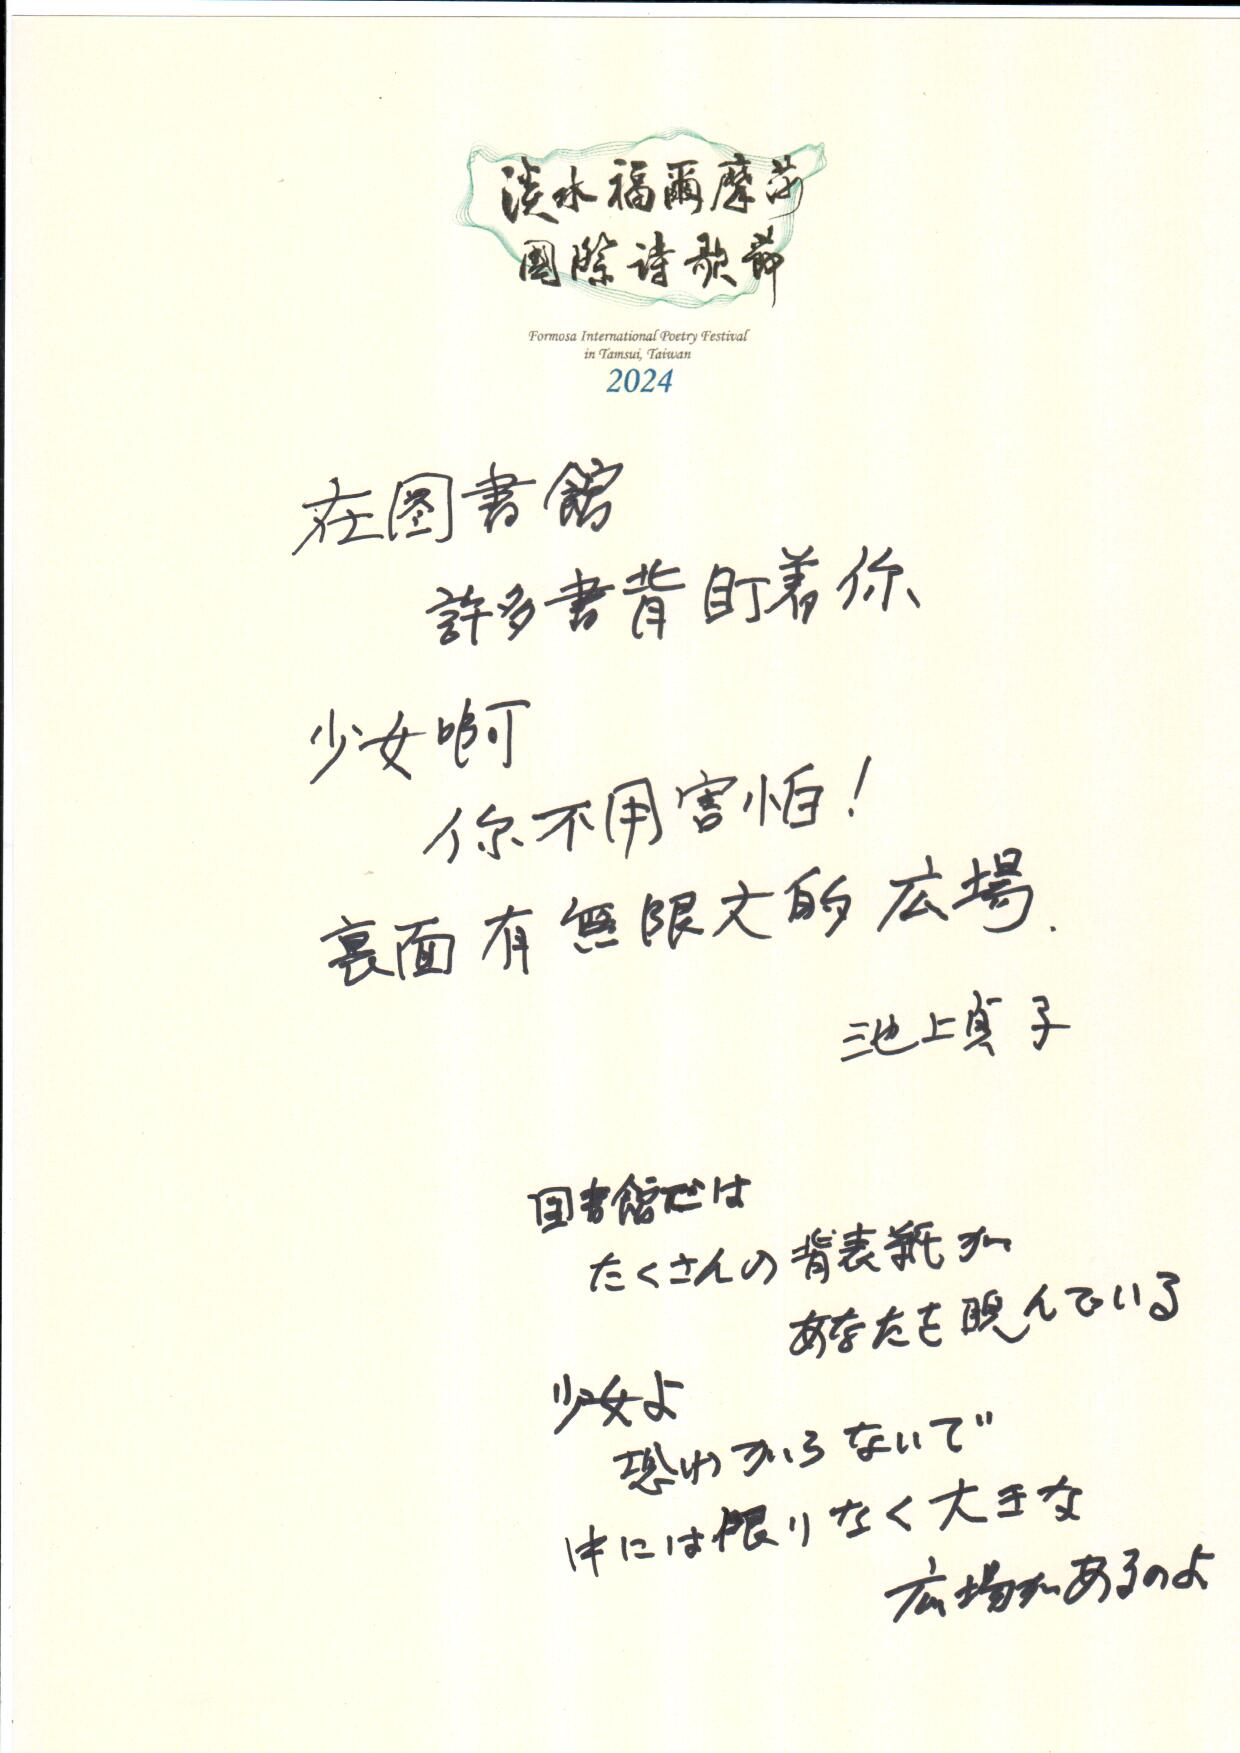 淡水福爾摩莎
國際詩歌節
Formosa International Poetry Festival
in Tamsui, Taiwan
2024
在图書館
許多書背盯着你
少女啊
你不用害怕！
裏面有無限大的広場.
池上貞子
図書館では
たくさんの背表紙が
あなたを睨んでいる
少女よ
恐わがらないで
中には限りなく大きな
広場があるのよ